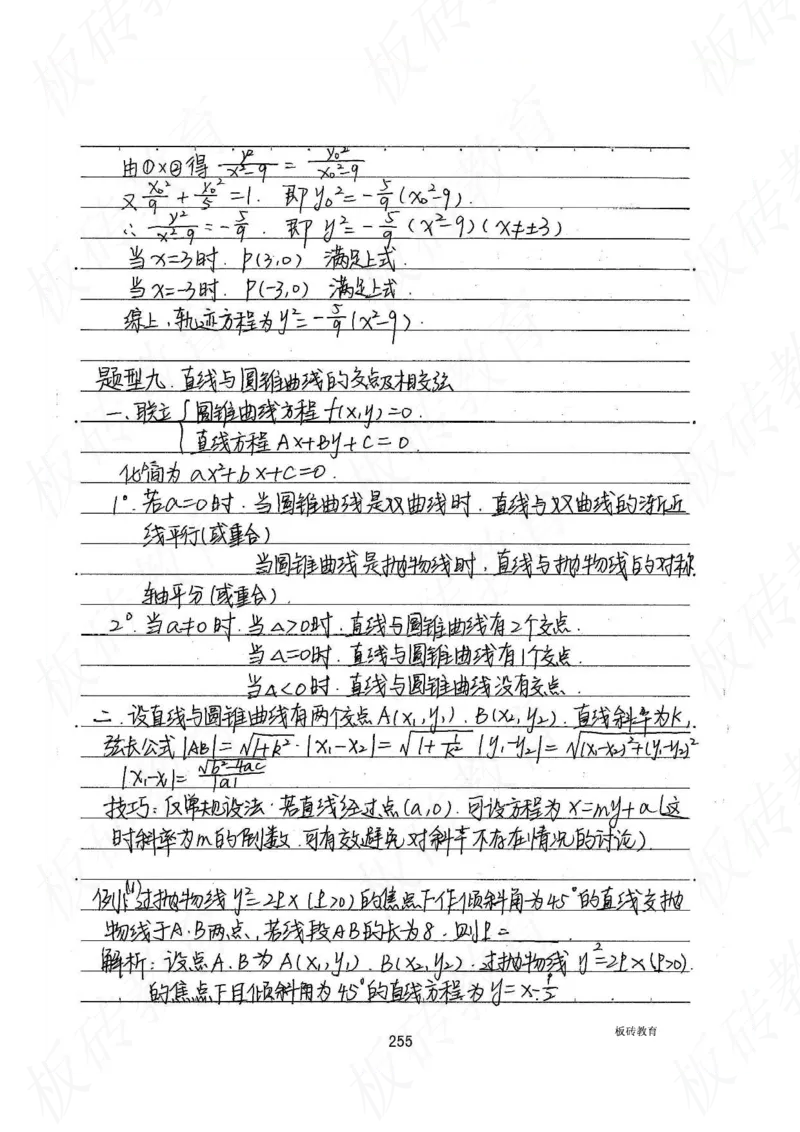 由①×②得 y²/(x²-9) = y₀²/(x₀²-9)
又 x₀²/9 + y₀²/5 = 1. 即 y₀² = -5/9 (x₀²-9).
∴ y²/(x²-9) = -5/9. 即 y² = -5/9 (x²-9) (x≠±3)
当x=3时. P(3,0) 满足上式.
当x=-3时. P(-3,0) 满足上式.
综上,轨迹方程为y² = -5/9 (x²-9).
题型九. 直线与圆锥曲线的交点及相交弦
一. 联立 { 圆锥曲线方程 f(x,y)=0.
直线方程 Ax+By+C=0.
化简为 ax²+bx+c=0.
1°. 若a=0时. 当圆锥曲线是双曲线时. 直线与双曲线的渐近
线平行(或重合)
当圆锥曲线是抛物线时, 直线与抛物线的对称
轴平分(或重合).
2°. 当a≠0时. 当△>0时. 直线与圆锥曲线有2个交点.
当△=0时. 直线与圆锥曲线有1个交点.
当△<0时. 直线与圆锥曲线没有交点.
二. 设直线与圆锥曲线有两个交点A(x₁,y₁). B(x₂,y₂). 直线斜率为k,
弦长公式 |AB| = √(1+k²)·|x₁-x₂| = √(1+1/k²) |y₁-y₂| = √((x₁-x₂)²+(y₁-y₂)²)
|x₁-x₂| = √(b²-4ac)/|a|
技巧: 反常规设法. 若直线经过点(a,0). 可设方程为 x=my+a (这
时斜率为m的倒数. 可有效避免对斜率不存在情况的讨论).
例1.(1)过抛物线y²=2px (p>0)的焦点F作倾斜角为45°的直线交抛
物线于A.B两点, 若线段AB的长为8. 则p=______.
解析: 设点A.B为A(x₁,y₁). B(x₂,y₂). 过抛物线 y²=2px (p>0).
的焦点F且倾斜角为45°的直线方程为 y=x-p/2
255
板砖教育